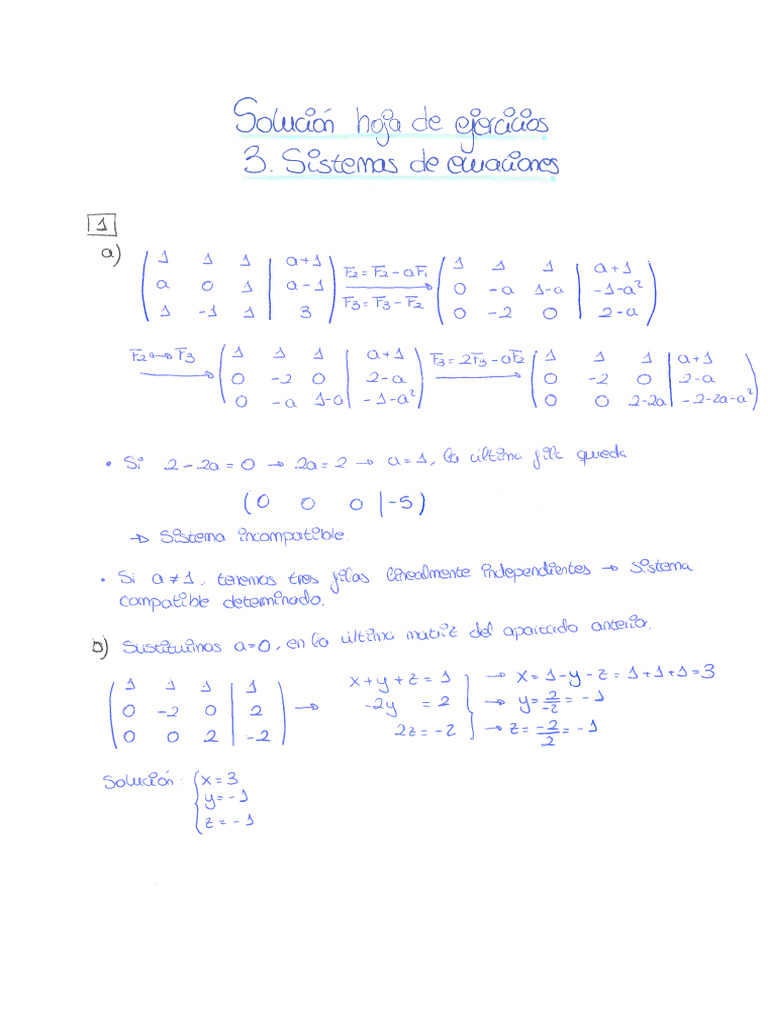 Solución hoja de ejercicios
3. Sistemas de ecuaciones
1
a) ( 1 1 1 | a+1 ; a 0 1 | a-1 ; 1 -1 1 | 3 ) F2=F2-aF1 → F3=F3-F2 ( 1 1 1 | a+1 ; 0 -a 1-a | -1-a² ; 0 -2 0 | 2-a )
F2↔F3 → ( 1 1 1 | a+1 ; 0 -2 0 | 2-a ; 0 -a 1-a | -1-a² ) F3=2F3-aF2 → ( 1 1 1 | a+1 ; 0 -2 0 | 2-a ; 0 0 2-2a | -2-2a-a² )
• Si 2-2a=0 → 2a=2 → a=1, la última fila queda
(0 0 0 |-5)
→ Sistema incompatible
• Si a≠1, tenemos tres filas linealmente independientes → Sistema
compatible determinado.
b) Sustituimos a=0, en la última matriz del apartado anterior.
( 1 1 1 | 1 ; 0 -2 0 | 2 ; 0 0 2 | -2 ) → x+y+z=1 → x=1-y-z=1+1+1=3
-2y = 2 → y=2/-2=-1
2z=-2 → z=-2/2=-1
Solución: { x=3
y=-1
z=-1